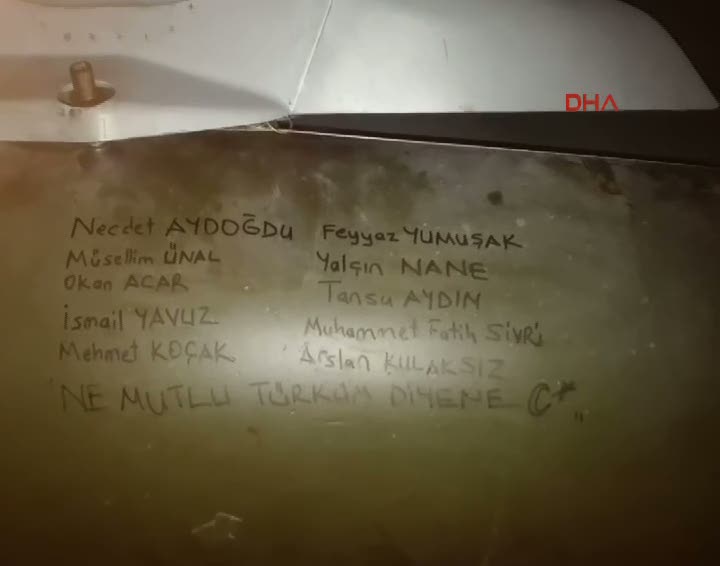 DHA
Necdet AYDOĞDU Feyyaz YUMUŞAK
Müsellim ÜNAL Yalçın NANE
Okan ACAR Tansu AYDIN
İsmail YAVUZ Muhammet Fatih SİVRİ
Mehmet KOÇAK Arslan KULAKSIZ
"NE MUTLU TÜRKÜM DİYENE ☪"